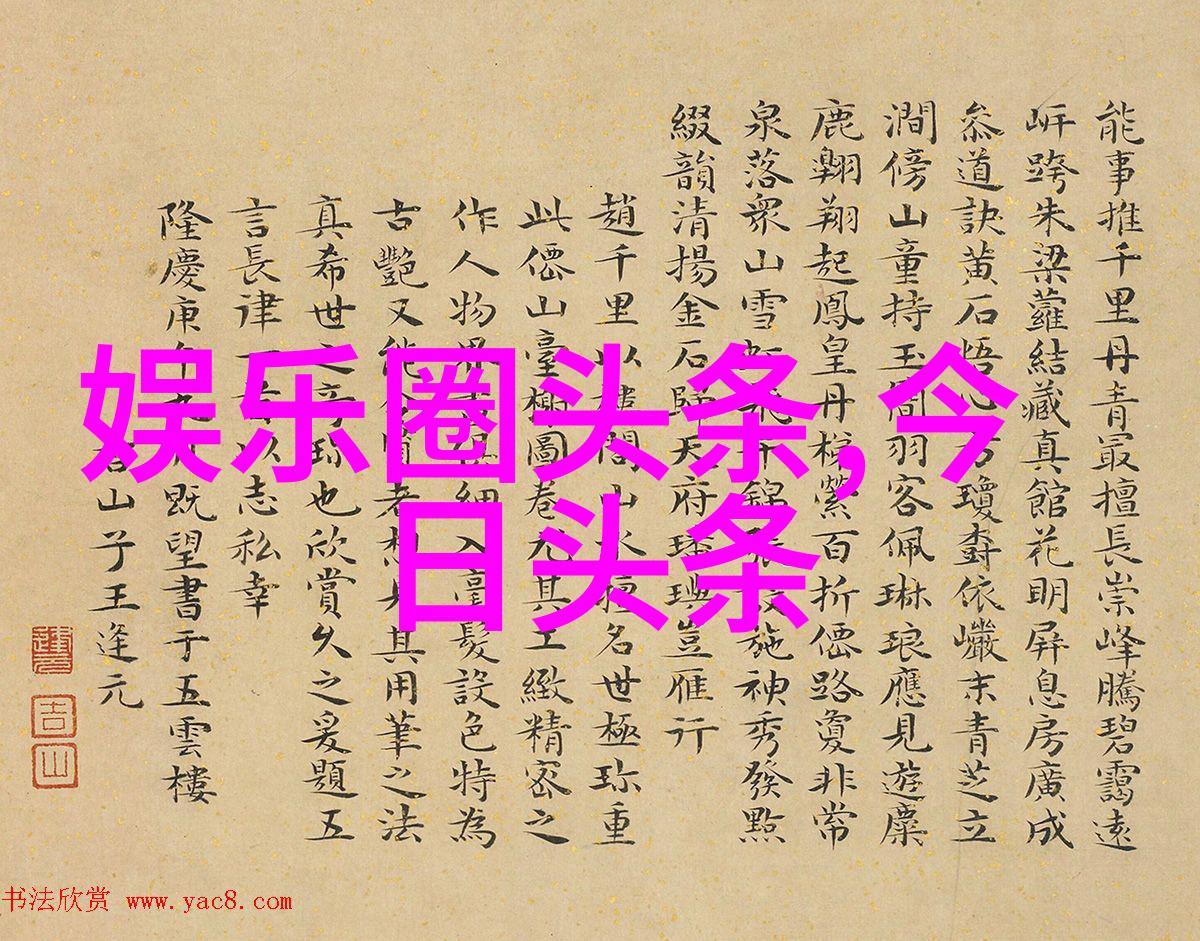 娱乐圈头条,今
日头条
能事推千里丹青冣擅長崇峰騰碧靄遠
岍跨朱梁蘿結藏真館花明屏息房廣成
叅道訣黃石悟方瓊依巘末青芝立
澗傍山童持玉簡羽客佩琳琅應見遊麋
鹿翱翔起鳳皇丹梯縈百折僊路夐非常
泉落衆山雪飛錦施神秀發點
綴韻清揚金石歸天府豈雁行
趙千里以間山水名世極珎重
此僊山臺榭圖卷尤其工緻精密之
作人物界細入毫髮設色特為
古艷又能者想見其用筆之法
真希世之奇珎也欣賞久之爰題五
言長律一首以志私幸
隆慶庚午九月既望書于五雲樓
吉山子王逢元
吉山
书法欣赏 www.yac8.com